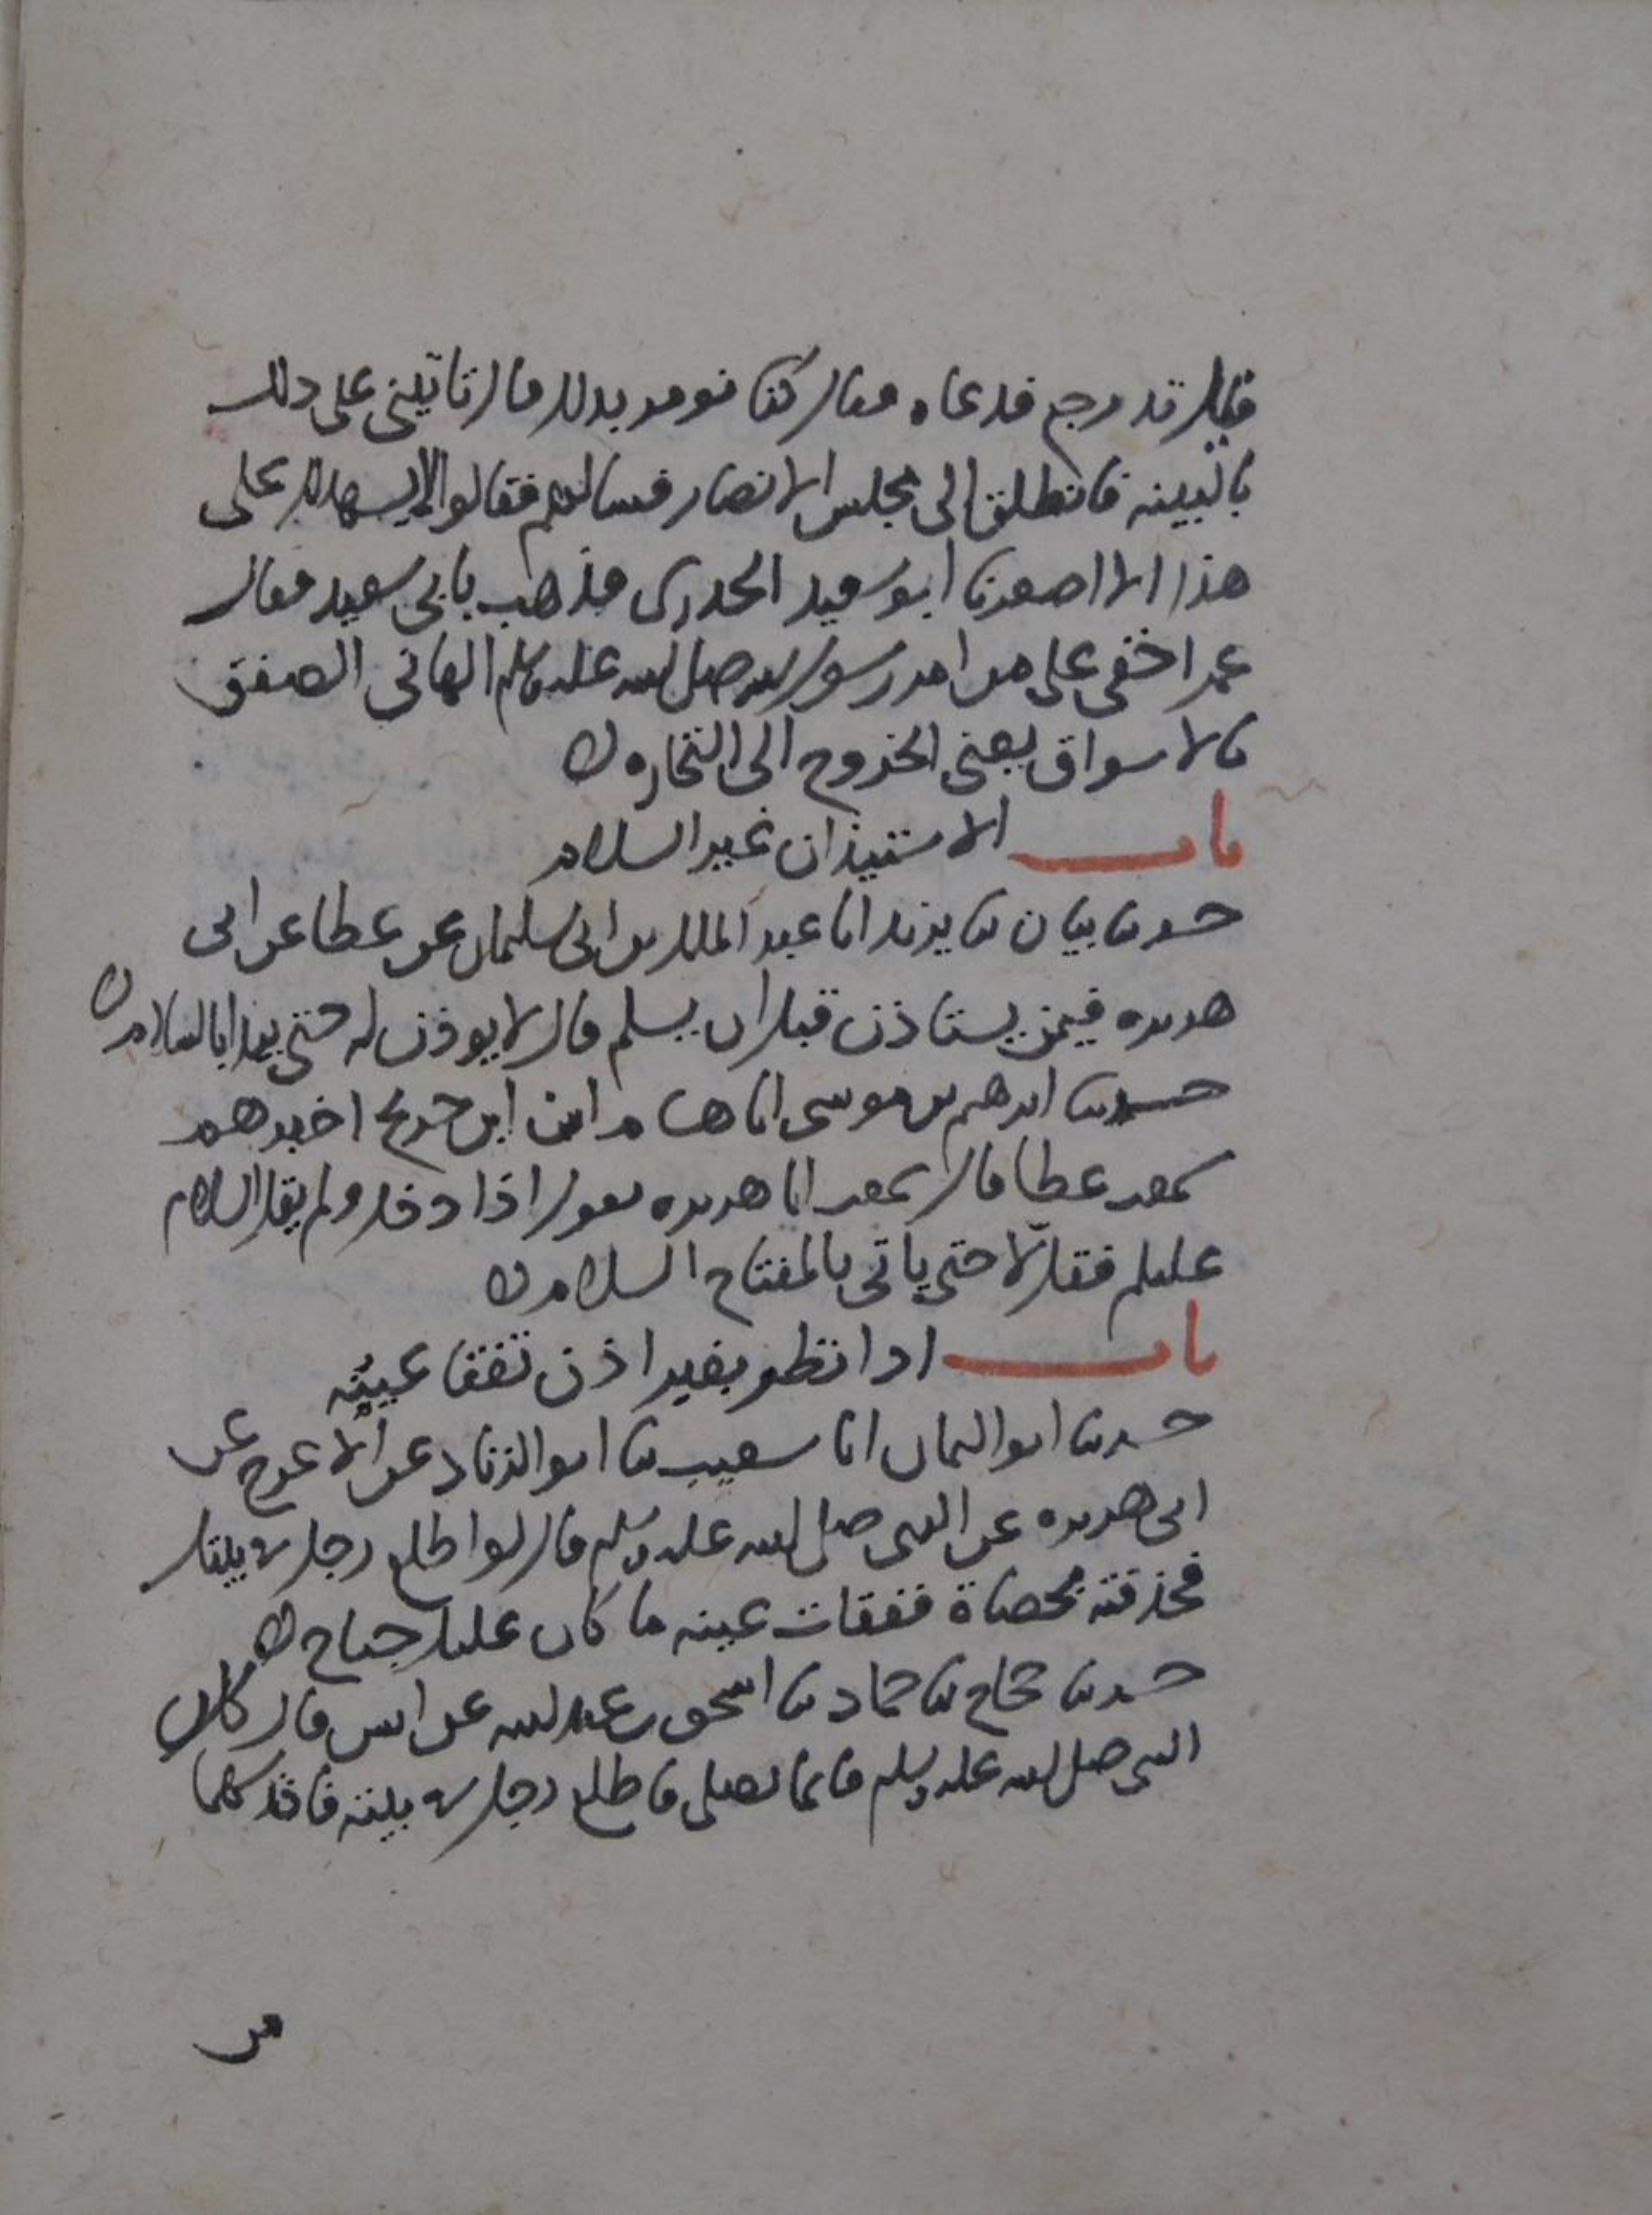 قيل قد رجع فدعاه فقال كنا نومر بذلك قال تاتيني على ذلك
بالبينه فانطلق الى مجلس الانصار فسالهم فقالوا لا يشهد لك على
هذا الا اصغرنا ابو سعيد الخدرى فذهب بابي سعيد فقال
عمر اخفى على من امر رسول الله صلى الله عليه وسلم الهاني الصفق
بالاسواق يعني الخروج الى التجاره
باب الاستيذان غير السلام
حدثنا بيان ثنا يزيد انا عبد الملك بن ابى سليمان عن عطا عن ابى
هريره فيمن يستاذن قبل ان يسلم قال لا يوذن له حتى يبدا بالسلام
حدثنا ابرهيم بن موسى انا هشام ان ابن جريج اخبرهم
سمعت عطا قال سمعت ابا هريره يقول اذا دخل ولم يقل السلام
عليكم فقل لا حتى ياتي بالمفتاح السلام
باب اذا نظر بغير اذن تفقا عينه
حدثنا ابو اليمان انا شعيب ثنا ابو الزناد عن الاعرج عن
ابى هريره عن النبى صلى الله عليه وسلم قال لو اطلع رجل في بيتك
فخذفته بحصاة ففقات عينه ما كان عليك جناح
حدثنا حجاج ثنا حماد ثنا اسحق بن عبد الله عن انس قال كان
النبى صلى الله عليه وسلم قائما يصلى فاطلع رجل في بيته فاخذ سهما
من